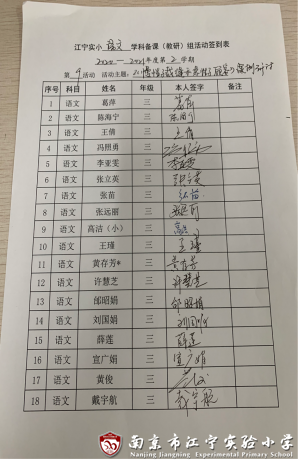 江宁实小 语文 学科备课（教研）组活动签到表
2020—2021年度第2学期
第9活动 活动主题：
序号 科目 姓名 年级 本人签字 备注
1 语文 葛萍 三 葛萍
2 语文 陈海宁 三 陈海宁
3 语文 王倩 三 王倩
4 语文 冯照勇 三
5 语文 李亚雯 三 李亚雯
6 语文 张立英 三 张立英
7 语文 张苗 三 张苗
8 语文 张远丽 三 张远丽
9 语文 高洁（小） 三 高洁
10 语文 王瑾 三 王瑾
11 语文 黄存芳* 三 黄存芳
12 语文 许慧芝 三 许慧芝
13 语文 邰昭娟 三 邰昭娟
14 语文 刘国娟 三 刘国娟
15 语文 薛莲 三 薛莲
16 语文 宣广娟 三 宣广娟
17 语文 黄俊 三
18 语文 戴宇航 三 戴宇航
南京市江宁实验小学
Nanjing Jiangning Experimental Primary School